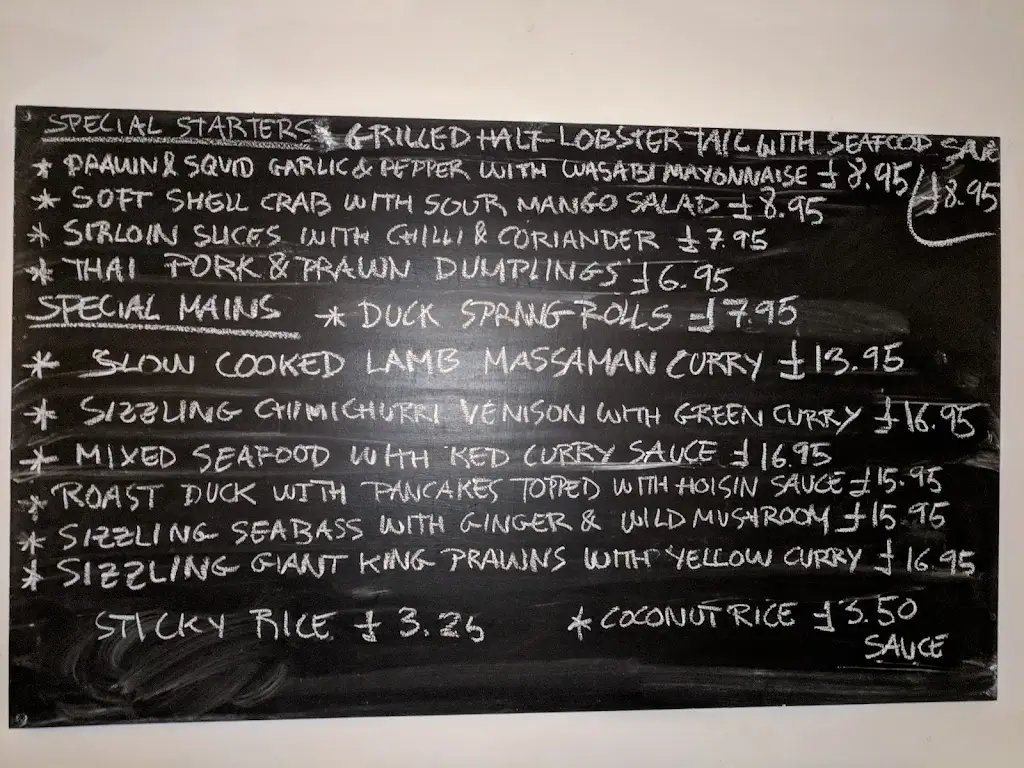 SPECIAL STARTERS * GRILLED HALF LOBSTER TAIL WITH SEAFOOD SAUCE
* PRAWN & SQUID GARLIC & PEPPER WITH WASABI MAYONNAISE £8.95 / £8.95
* SOFT SHELL CRAB WITH SOUR MANGO SALAD £8.95
* SIRLOIN SLICES WITH CHILLI & CORIANDER £7.95
* THAI PORK & PRAWN DUMPLINGS £6.95
SPECIAL MAINS * DUCK SPRING ROLLS £7.95
* SLOW COOKED LAMB MASSAMAN CURRY £13.95
* SIZZLING CHIMICHURRI VENISON WITH GREEN CURRY £16.95
* MIXED SEAFOOD WITH RED CURRY SAUCE £16.95
* ROAST DUCK WITH PANCAKES TOPPED WITH HOISIN SAUCE £15.95
* SIZZLING SEABASS WITH GINGER & WILD MUSHROOM £15.95
* SIZZLING GIANT KING PRAWNS WITH YELLOW CURRY £16.95
STICKY RICE £3.25 * COCONUT RICE £3.50
SAUCE